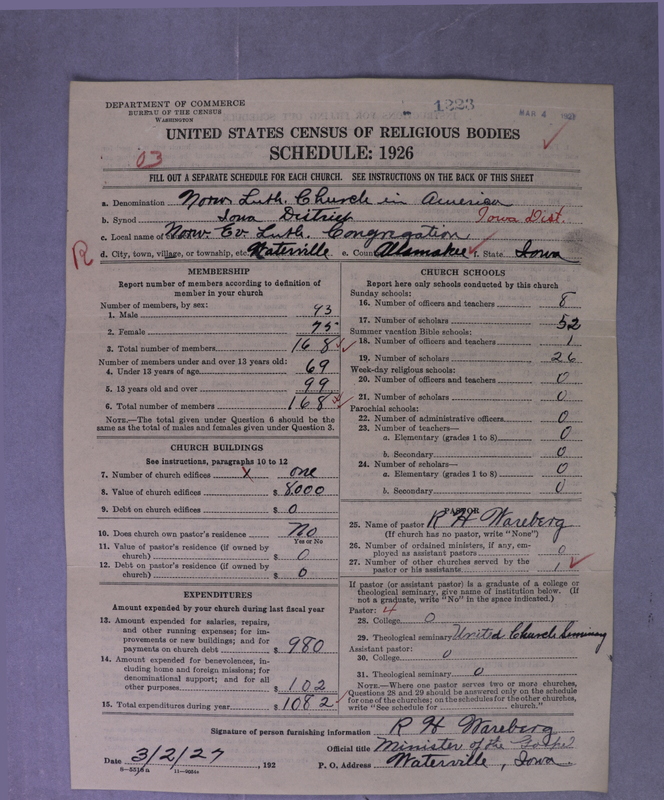 DEPARTMENT OF COMMERCE
BUREAU OF THE CENSUS
WASHINGTON
1223
MAR 4 1927
UNITED STATES CENSUS OF RELIGIOUS BODIES
SCHEDULE: 1926
03
FILL OUT A SEPARATE SCHEDULE FOR EACH CHURCH. SEE INSTRUCTIONS ON THE BACK OF THIS SHEET
a. Denomination Norw. Luth. Church in America
b. Synod Iowa District Iowa Dist.
c. Local name of Norw Ev. Luth. Congregation
R
d. City, town, village, or township, etc. Waterville e. County Allamakee f. State Iowa
MEMBERSHIP
Report number of members according to definition of
member in your church
Number of members, by sex:
1. Male 93
2. Female 75
3. Total number of members 168
Number of members under and over 13 years old:
4. Under 13 years of age 69
5. 13 years old and over 99
6. Total number of members 168
NOTE.—The total given under Question 6 should be the
same as the total of males and females given under Question 3.
CHURCH BUILDINGS
See instructions, paragraphs 10 to 12
7. Number of church edifices x one
8. Value of church edifices $ 8000
9. Debt on church edifices $ 0
10. Does church own pastor's residence No
Yes or No
11. Value of pastor's residence (if owned by
church) $ 0
12. Debt on pastor's residence (if owned by
church) $ 0
EXPENDITURES
Amount expended by your church during last fiscal year
13. Amount expended for salaries, repairs,
and other running expenses; for im-
provements or new buildings; and for
payments on church debt $ 980
14. Amount expended for benevolences, in-
cluding home and foreign missions; for
denominational support; and for all
other purposes $ 102
15. Total expenditures during year $ 1082
CHURCH SCHOOLS
Report here only schools conducted by this church
Sunday schools:
16. Number of officers and teachers 8
17. Number of scholars 52
Summer vacation Bible schools:
18. Number of officers and teachers 1
19. Number of scholars 26
Week-day religious schools:
20. Number of officers and teachers 0
21. Number of scholars 0
Parochial schools:
22. Number of administrative officers 0
23. Number of teachers—
a. Elementary (grades 1 to 8) 0
b. Secondary 0
24. Number of scholars—
a. Elementary (grades 1 to 8) 0
b. Secondary 0
PASTOR
25. Name of pastor R H Wareberg
(If church has no pastor, write "None")
26. Number of ordained ministers, if any, em-
ployed as assistant pastors 0
27. Number of other churches served by the
pastor or his assistants 1
If pastor (or assistant pastor) is a graduate of a college or
theological seminary, give name of institution below. (If
not a graduate, write "No" in the space indicated.)
Pastor: 4
28. College 0
29. Theological seminary United Church Seminary
Assistant pastor:
30. College 0
31. Theological seminary 0
NOTE.—Where one pastor serves two or more churches,
Questions 28 and 29 should be answered only on the schedule
for one of the churches; on the schedules for the other churches,
write "See schedule for church."
Signature of person furnishing information R H Wareberg
Official title Minister of the Gospel
Date 3/2/27, 192 P. O. Address Waterville, Iowa
8-5518a 11-9024